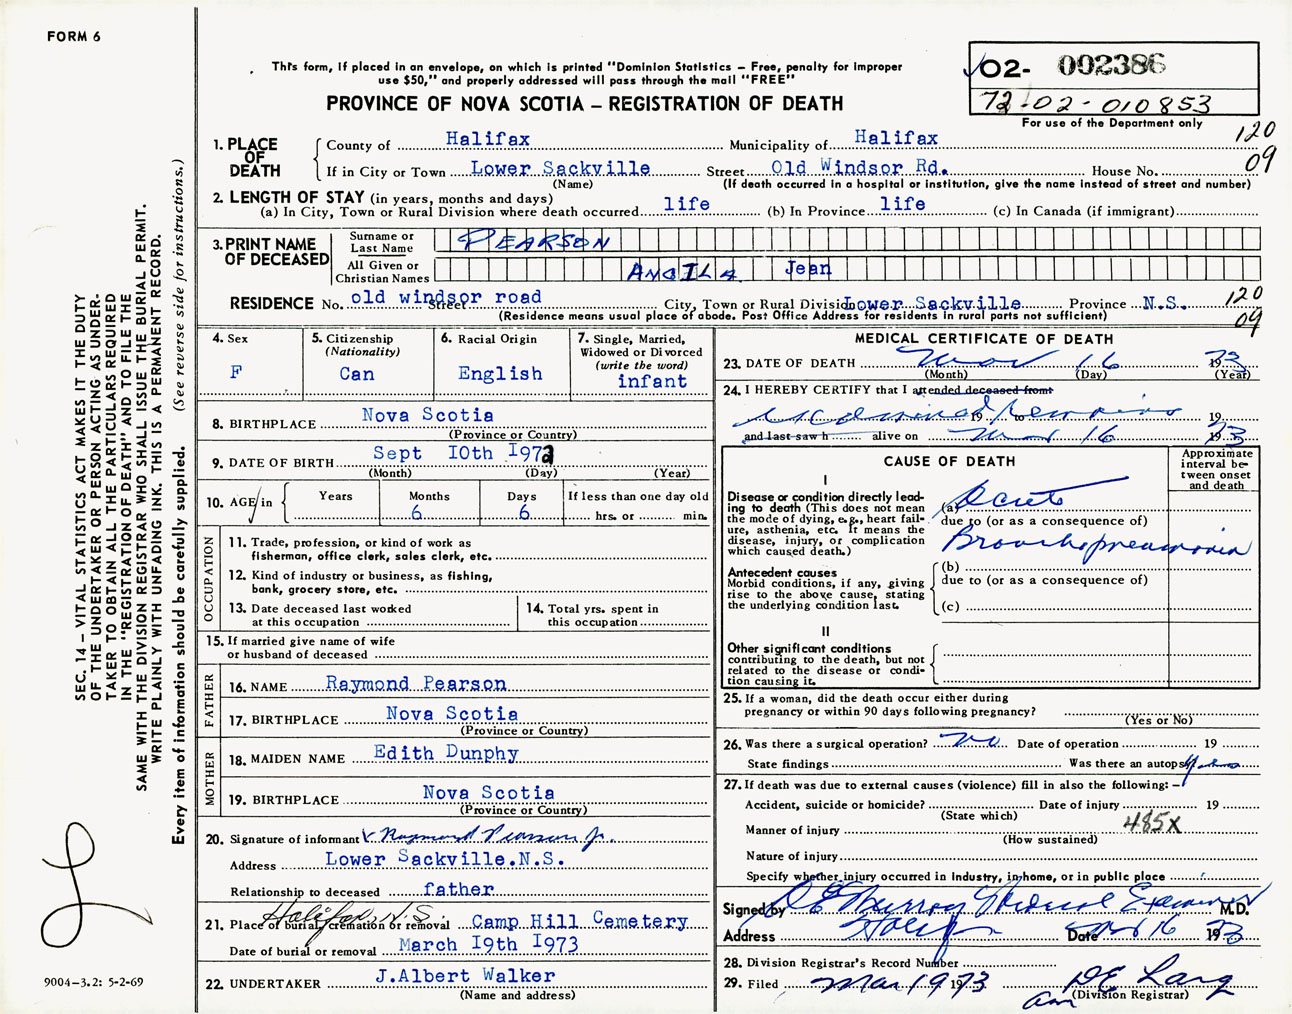 FORM 6
This form, if placed in an envelope, on which is printed "Dominion Statistics – Free, penalty for improper
use $50," and properly addressed will pass through the mail "FREE"
PROVINCE OF NOVA SCOTIA – REGISTRATION OF DEATH
02- 002386
72-02-010853
For use of the Department only
120
09
1. PLACE OF DEATH
County of Halifax Municipality of Halifax
If in City or Town Lower Sackville Street Old Windsor Rd. House No.
(Name) (If death occurred in a hospital or institution, give the name instead of street and number)
2. LENGTH OF STAY (in years, months and days)
(a) In City, Town or Rural Division where death occurred life (b) In Province life (c) In Canada (if immigrant)
3. PRINT NAME OF DECEASED
Surname or Last Name PEARSON
All Given or Christian Names ANGILA Jean
RESIDENCE No. old windsor road Street City, Town or Rural Division Lower Sackville Province N.S.
(Residence means usual place of abode. Post Office Address for residents in rural parts not sufficient)
120
09
4. Sex
F
5. Citizenship
(Nationality)
Can
6. Racial Origin
English
7. Single, Married,
Widowed or Divorced
(write the word)
infant
8. BIRTHPLACE Nova Scotia
(Province or Country)
9. DATE OF BIRTH Sept 10th 1972
(Month) (Day) (Year)
10. AGE in
Years Months Days If less than one day old
6 6 hrs. or min.
OCCUPATION
11. Trade, profession, or kind of work as
fisherman, office clerk, sales clerk, etc.
12. Kind of industry or business, as fishing,
bank, grocery store, etc.
13. Date deceased last worked
at this occupation
14. Total yrs. spent in
this occupation
15. If married give name of wife
or husband of deceased
FATHER
16. NAME Raymond Pearson
17. BIRTHPLACE Nova Scotia
(Province or Country)
MOTHER
18. MAIDEN NAME Edith Dunphy
19. BIRTHPLACE Nova Scotia
(Province or Country)
20. Signature of informant Raymond Pearson Jr.
Address Lower Sackville.N.S.
Relationship to deceased father
Halifax, N.S.
21. Place of burial, cremation or removal Camp Hill Cemetery
Date of burial or removal March 19th 1973
22. UNDERTAKER J.Albert Walker
(Name and address)
MEDICAL CERTIFICATE OF DEATH
23. DATE OF DEATH Mar 16 1973
(Month) (Day) (Year)
24. I HEREBY CERTIFY that I attended deceased from:
examined remains 19 to 19
and last saw h alive on Mar 16 1973
CAUSE OF DEATH
Approximate
interval be-
tween onset
and death
I
Disease or condition directly lead-
ing to death (This does not mean
the mode of dying, e.g., heart fail-
ure, asthenia, etc. It means the
disease, injury, or complication
which caused death.)
(a) Acute
due to (or as a consequence of)
Bronchopneumonia
Antecedent causes
Morbid conditions, if any, giving
rise to the above cause, stating
the underlying condition last.
(b)
due to (or as a consequence of)
(c)
II
Other significant conditions
contributing to the death, but not
related to the disease or condi-
tion causing it.
25. If a woman, did the death occur either during
pregnancy or within 90 days following pregnancy?
(Yes or No)
26. Was there a surgical operation? no Date of operation 19
State findings Was there an autopsy yes
27. If death was due to external causes (violence) fill in also the following:–
Accident, suicide or homicide? Date of injury 19
(State which)
Manner of injury 485X
(How sustained)
Nature of injury
Specify whether injury occurred in industry, in home, or in public place
Signed by Murray Medical Examiner M.D.
Address Halifax Date Mar 16 1973
28. Division Registrar's Record Number
29. Filed Mar 19 1973 DE Lang
(Division Registrar)
SEC. 14 – VITAL STATISTICS ACT MAKES IT THE DUTY
OF THE UNDERTAKER OR PERSON ACTING AS UNDER-
TAKER TO OBTAIN ALL THE PARTICULARS REQUIRED
IN THE "REGISTRATION OF DEATH" AND TO FILE THE
SAME WITH THE DIVISION REGISTRAR WHO SHALL ISSUE THE BURIAL PERMIT.
WRITE PLAINLY WITH UNFADING INK. THIS IS A PERMANENT RECORD.
Every item of information should be carefully supplied. (See reverse side for instructions.)
9004-3.2: 5-2-69